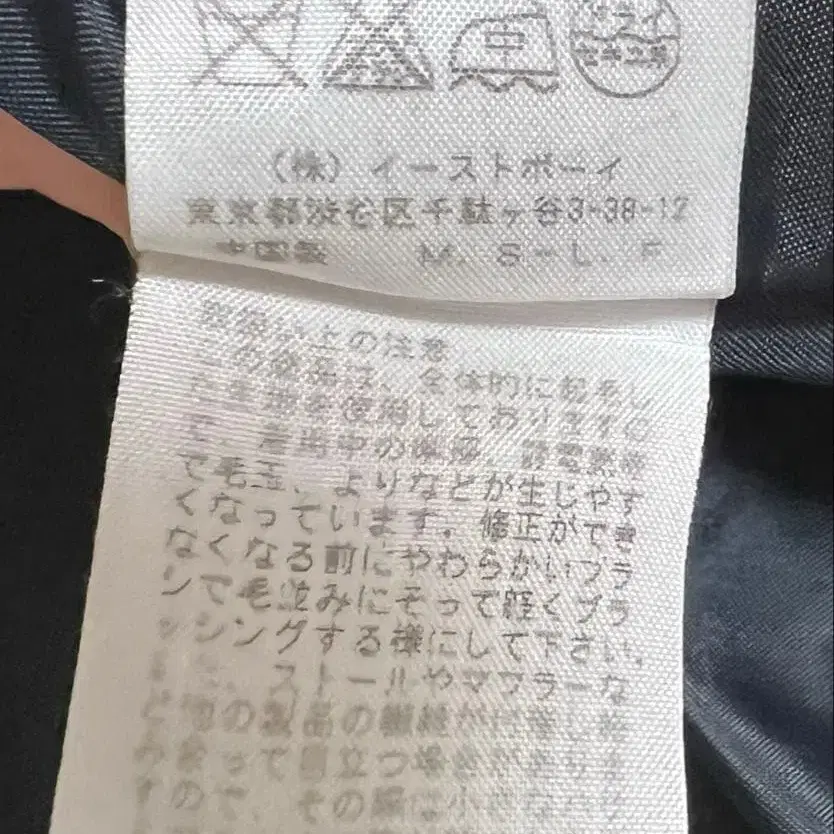 中
ドライ
石油系
(株) イーストボーイ
東京都渋谷区千駄ヶ谷3-38-12
中国製 M. S-L. F
取扱い上の注意
この商品は、全体的に起毛し
た生地を使用しております
で、着用中の摩擦、静電気
で毛玉、よりなどが生じやす
くなっています。修正ができ
なくなる前にやわらかいブラ
シで毛並みにそって軽くブラ
ッシングする様にして下さい。
また、ストールやマフラーな
ど他の製品の繊維が付着し
って目立つ場合があり
すので、その際は小さな